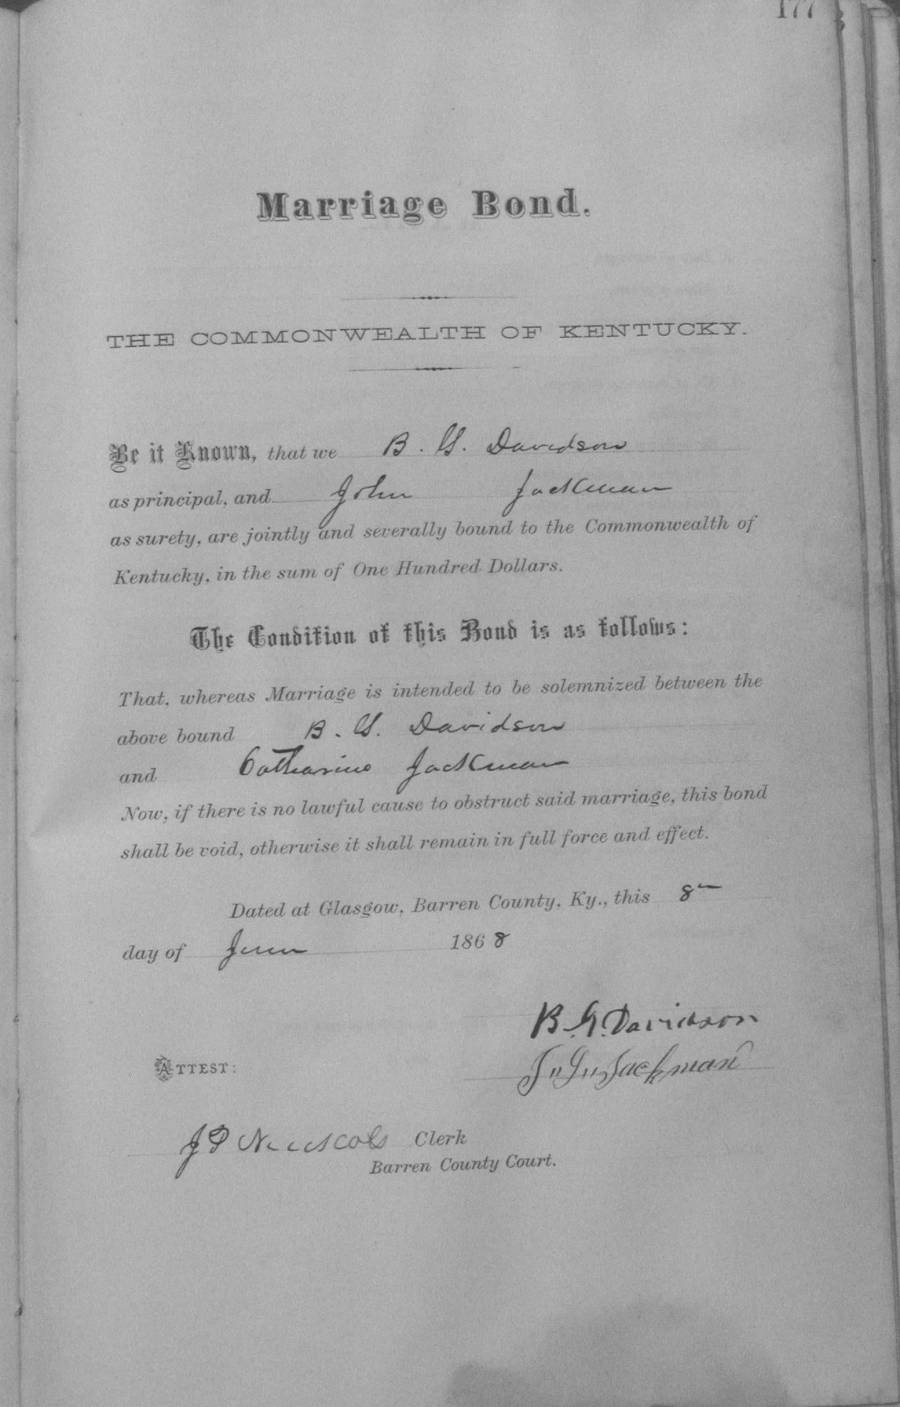 177
Marriage Bond.
THE COMMONWEALTH OF KENTUCKY.
Be it Known, that we B. G. Davidson
as principal, and John Jackman
as surety, are jointly and severally bound to the Commonwealth of
Kentucky, in the sum of One Hundred Dollars.
The Condition of this Bond is as follows:
That, whereas Marriage is intended to be solemnized between the
above bound B. G. Davidson
and Catharine Jackman
Now, if there is no lawful cause to obstruct said marriage, this bond
shall be void, otherwise it shall remain in full force and effect.
Dated at Glasgow, Barren County, Ky., this 8th
day of June 1868
B. G. Davidson
Jackman
ATTEST:
J P Clerk
Barren County Court.